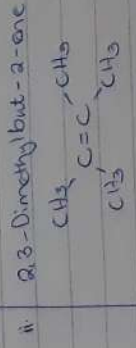 ii. 2,3-Dimethylbut-2-ene
CH3 CH3
C=C
CH3 CH3